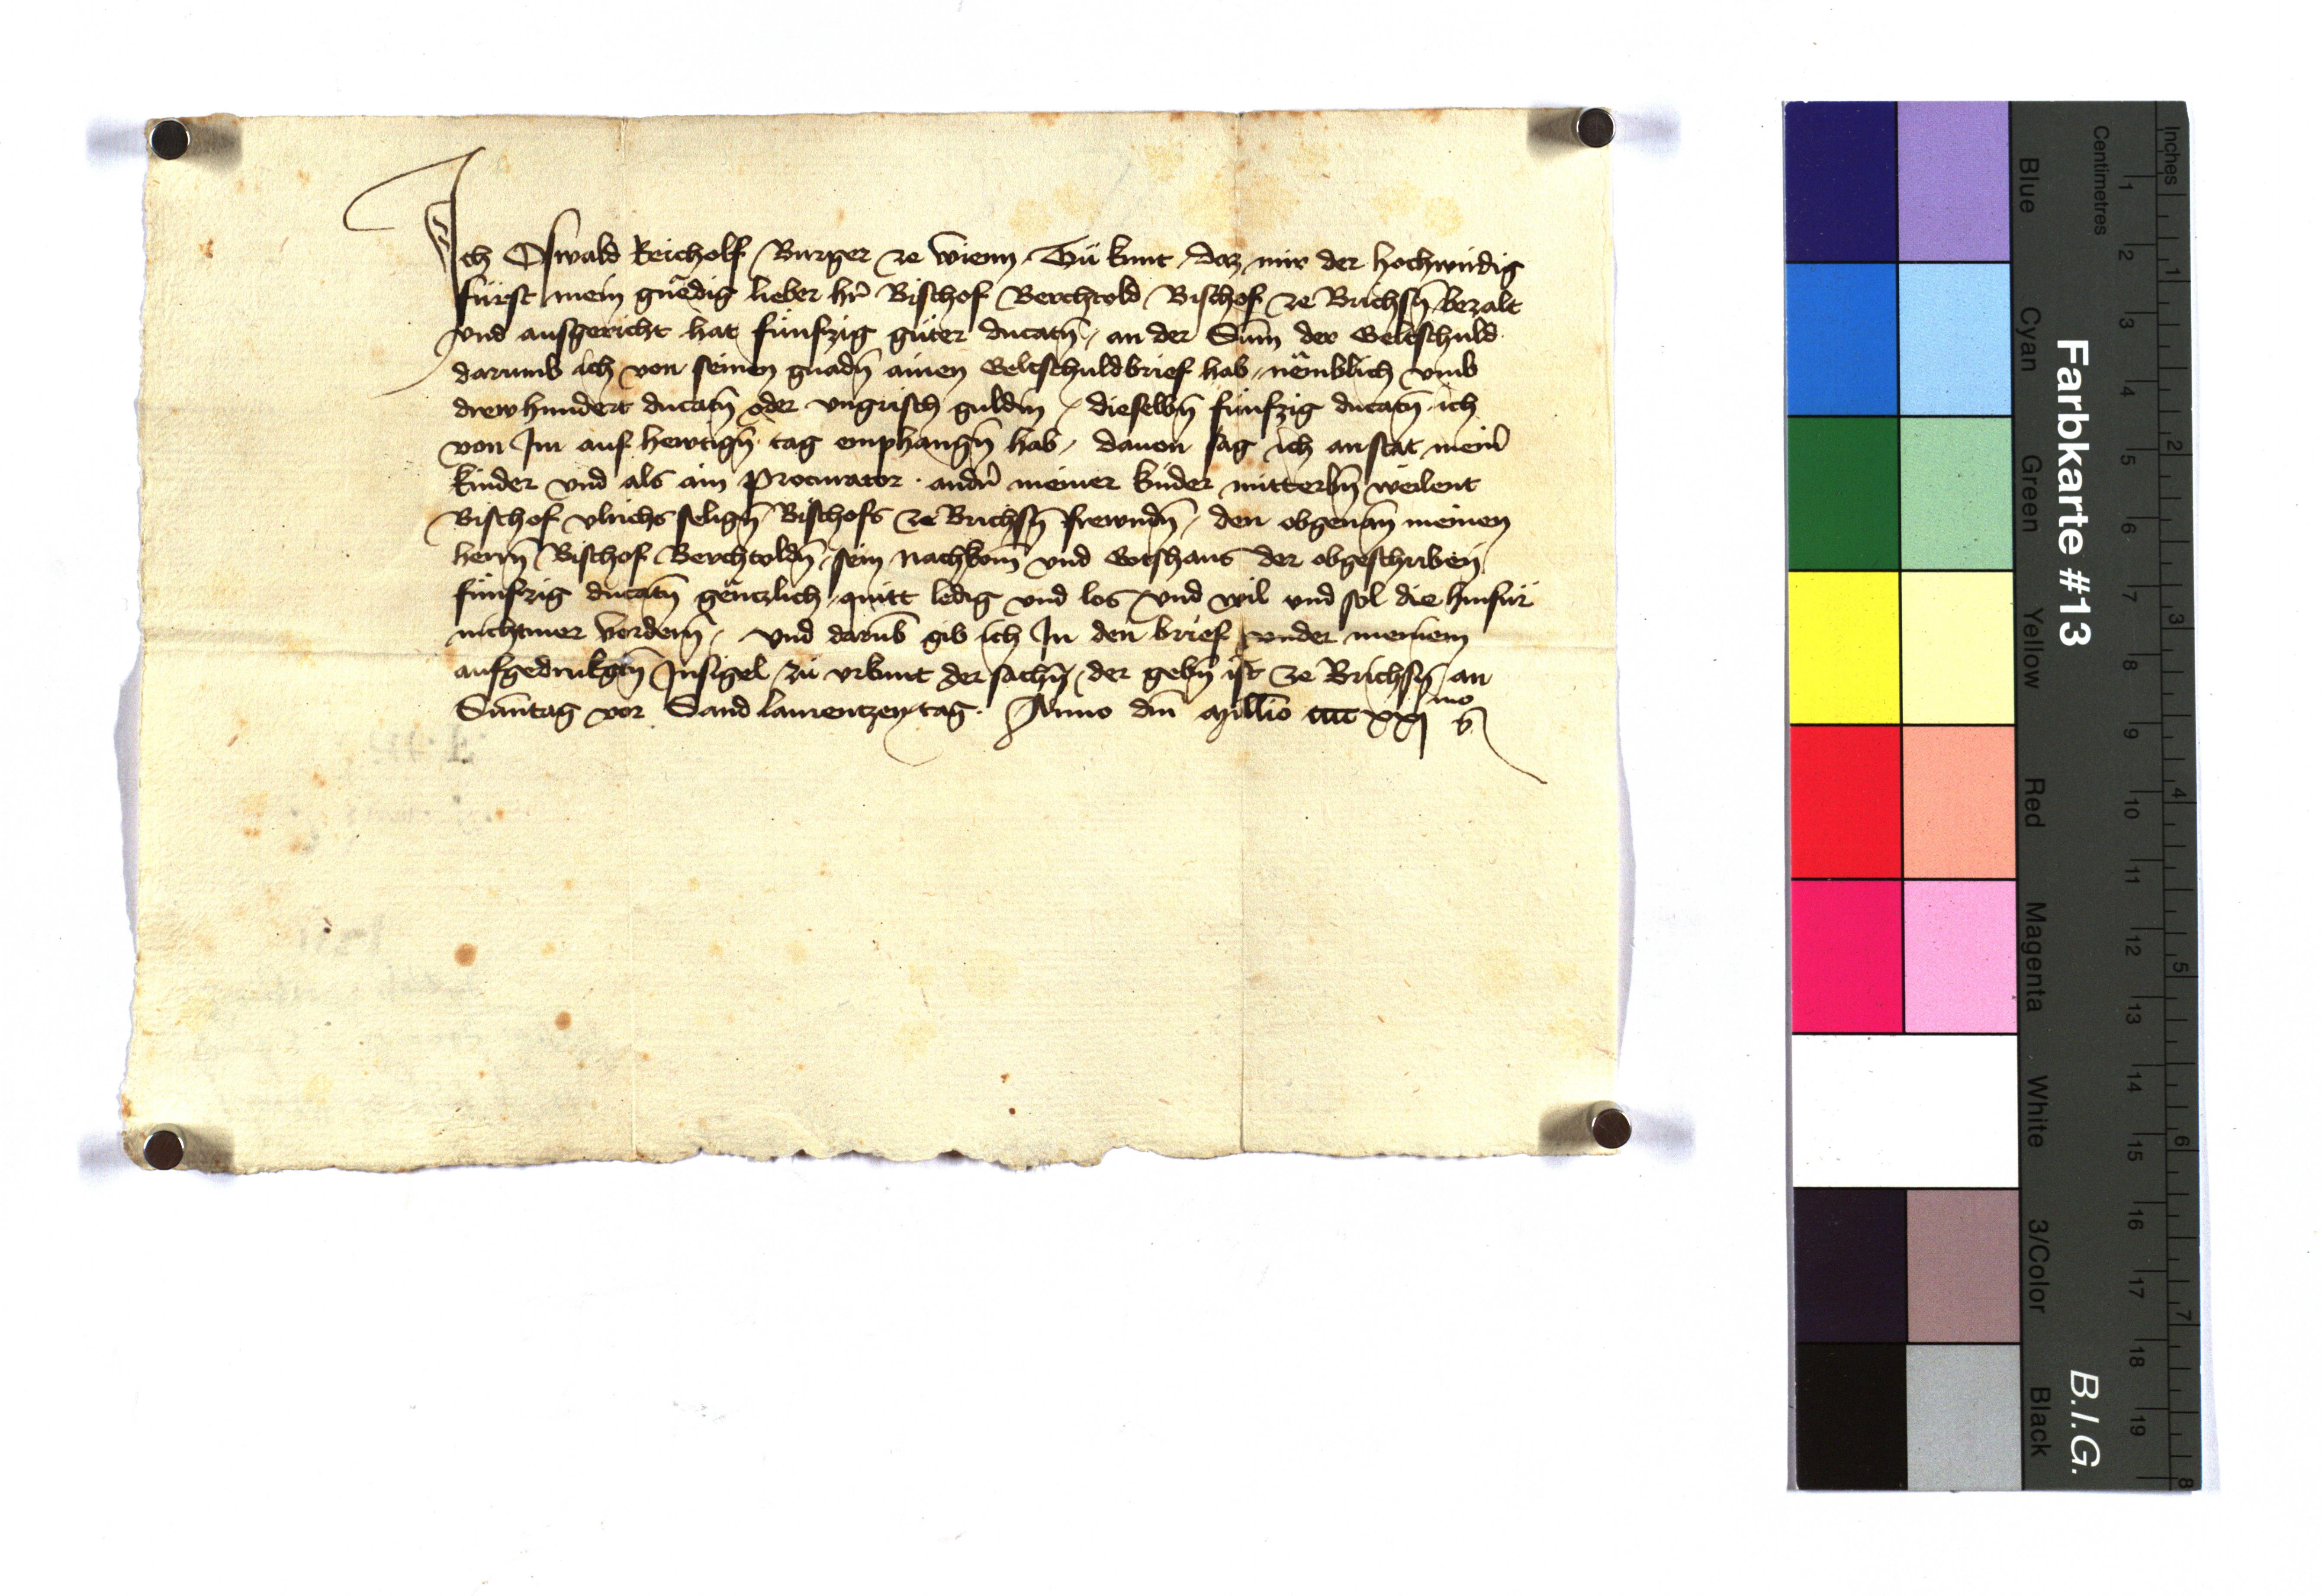 Ich Oswald Reicholf Burger ze Wienn Tů kunt daz mir der hochwirdig
fürst mein gnëdig lieber hr̄ Bischof Berchtold Bischof ze Brichsn̄ bezalt
vnd ausgericht hat fünfzig güter ducatn̄ an der Sum̄ der Geltschuld
darumb ich von seinen gnadn̄ ainen Geltschuldbrief hab nëmblich vmb
drewhundert ducatn̄ oder vngrisch guldin dieselbn̄ fünfzig ducatn̄ ich
von Im auf hewtign̄ tag emphangn̄ hab dauon sag ich anstat mein̄
kinder vnd als ain Procurator andr̄ meiner kinder mitterbn̄ weilent
Bischof vlrichs selign̄ Bischofs ze Brichsn̄ frewndn̄ den obgenan̄ meinen
herrn̄ Bischof Berchtoldn̄ sein nachkom̄ vnd Gotshaus der obgeschriben
fünfzig ducatn̄ gëntzlich quitt ledig vnd los vnd wil vnd sol die hinfür
nichtmer vordern̄ vnd darub̄ gib ich In den brief vnder meinem
aufgedrukgtn̄ Insigel zü vrkunt der sachn̄ der gebn̄ ist ze Brichsn̄ an
Sūntag vor Sand laurentzen tag Anno dn̄i Mill̄io cccc xxj mo
Farbkarte #13
B.I.G.
Blue Cyan Green Yellow Red Magenta White 3/Color Black
Centimetres 1 2 3 4 5 6 7 8 9 10 11 12 13 14 15 16 17 18 19
Inches 1 2 3 4 5 6 7 8